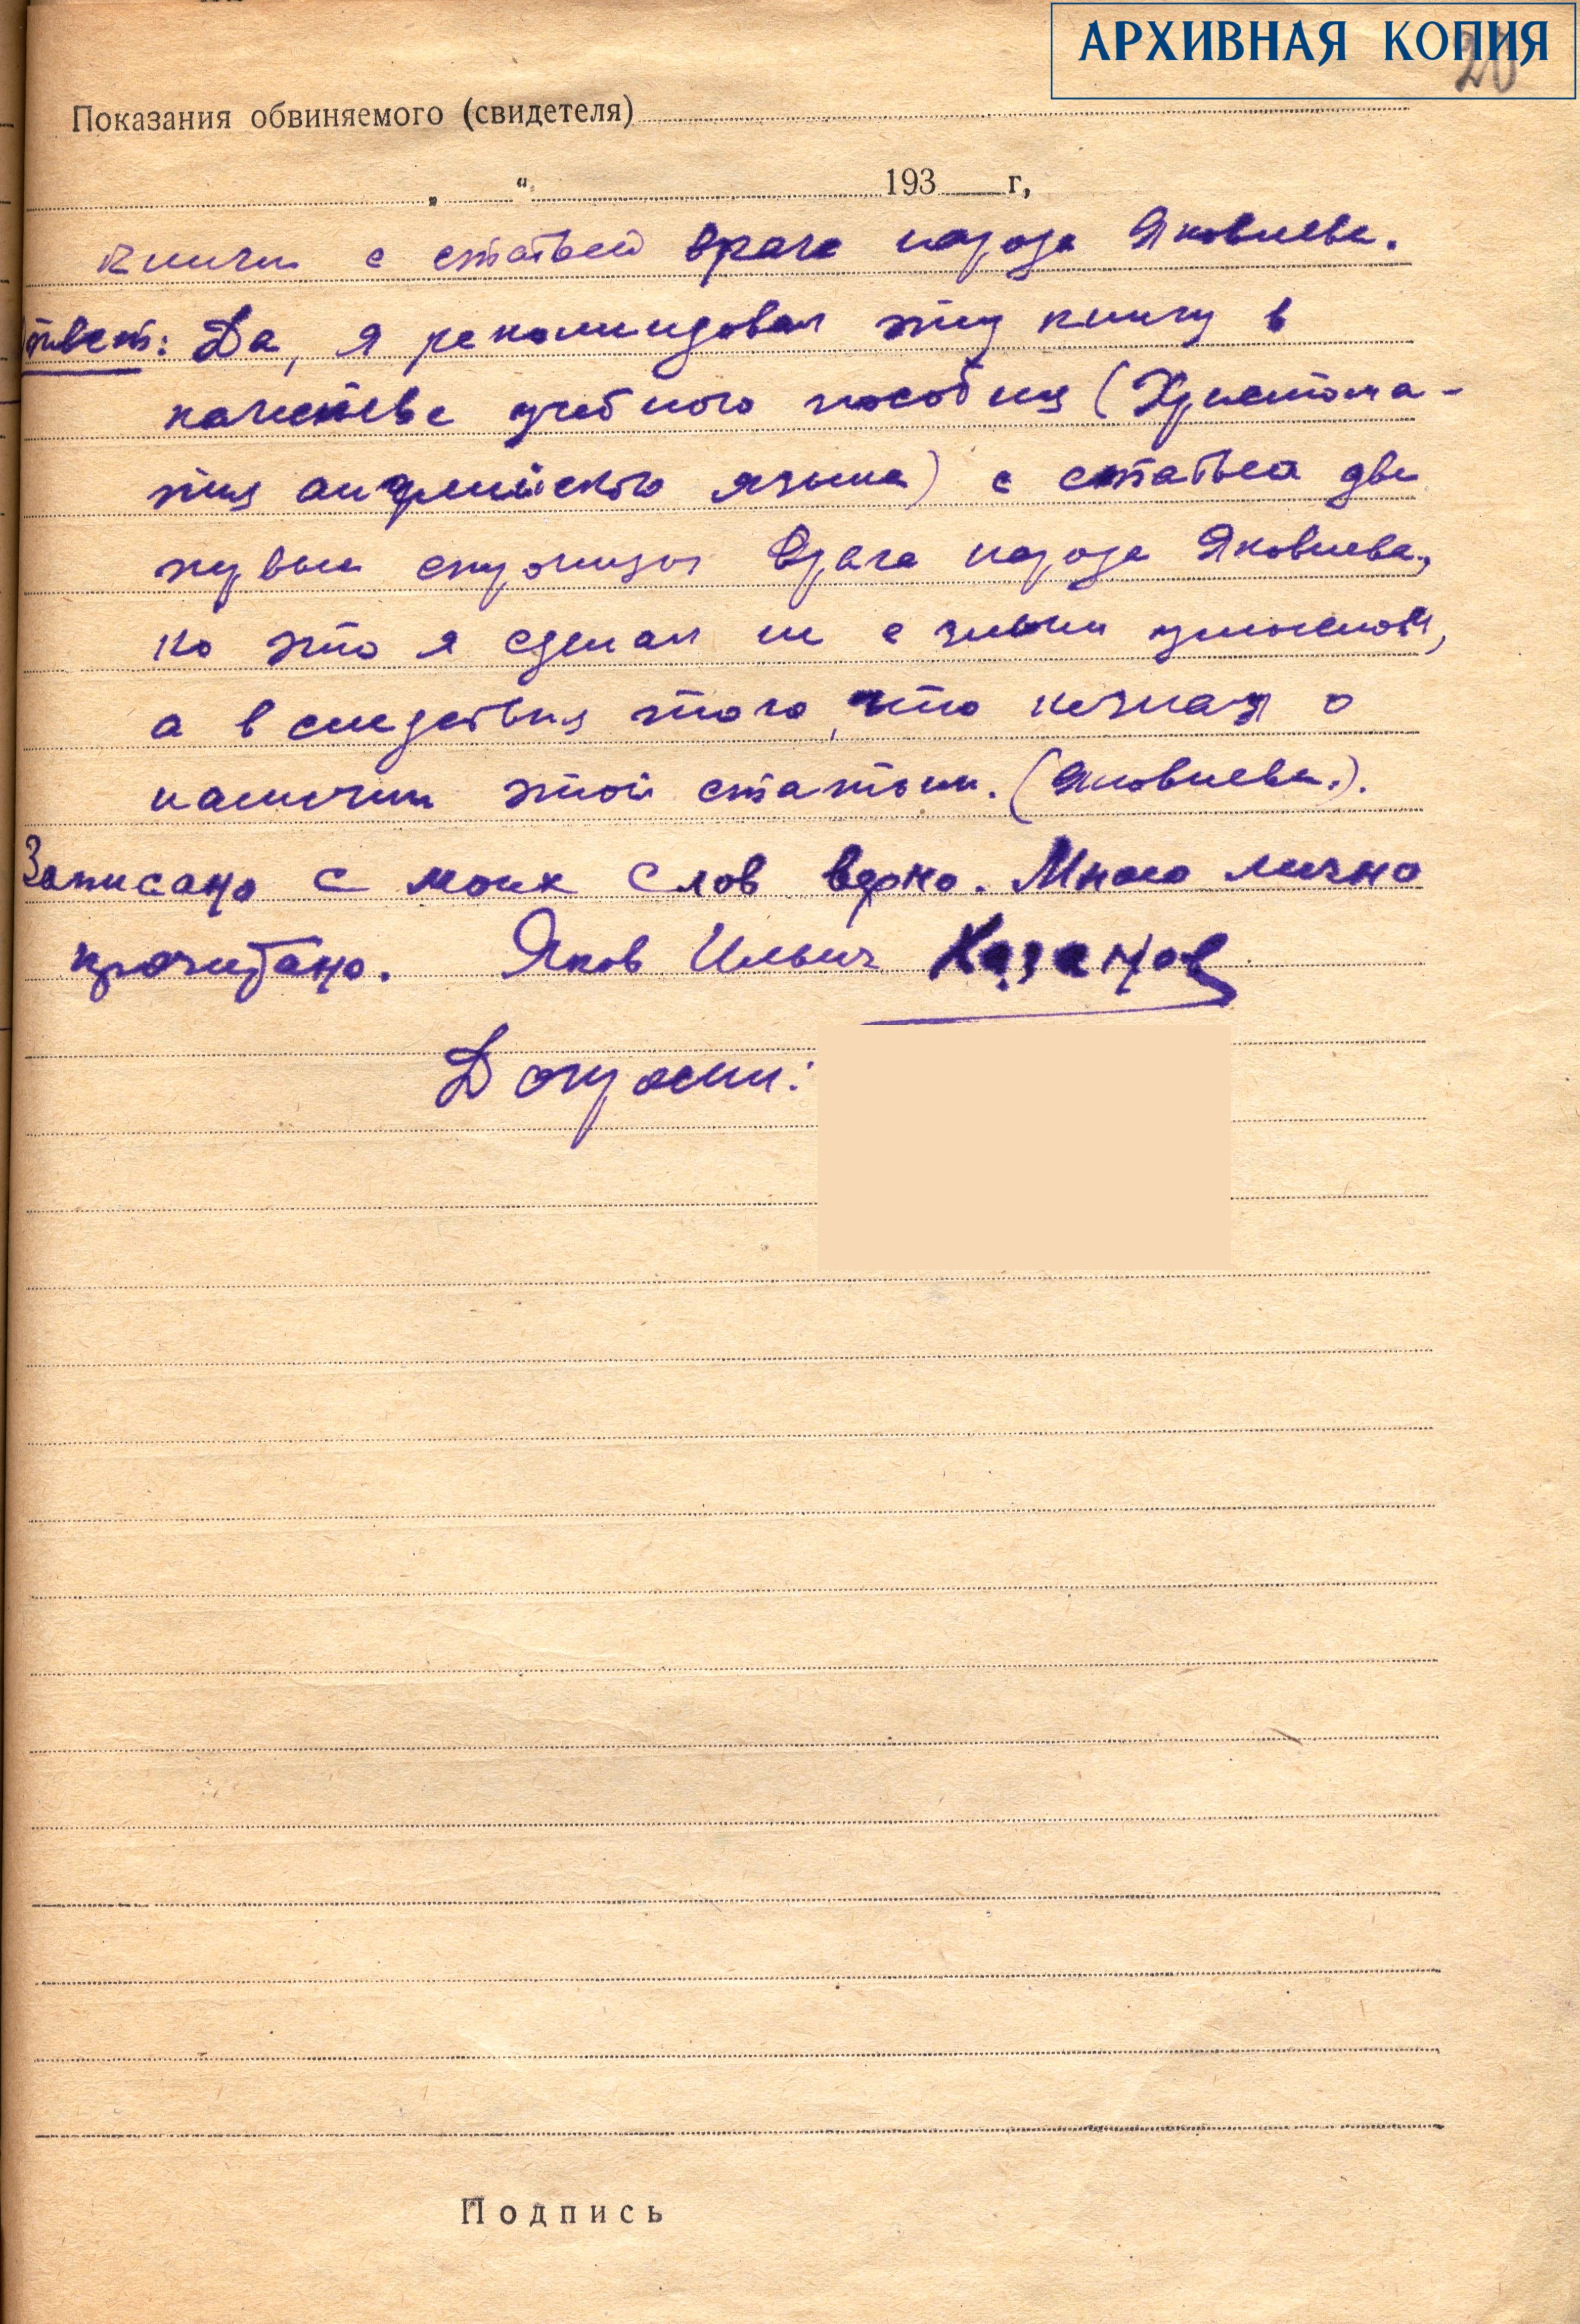 АРХИВНАЯ КОПИЯ
20
Показания обвиняемого (свидетеля)
„ “ 193 г,
книги с статьей врага народа Яковлева.
Ответ: Да, я рекомендовал эту книгу в
качестве учебного пособия (Христома-
тия английского языка) с статьей для
первым врага народа Яковлева,
но это я сделал не с умыслом,
а вследствия того, что незнал о
наличии этой статьи. (Яковлева.).
Записано с моих слов верно. Мною лично
прочитано. Яков Ильич Хазанов
Допросил:
Подпись